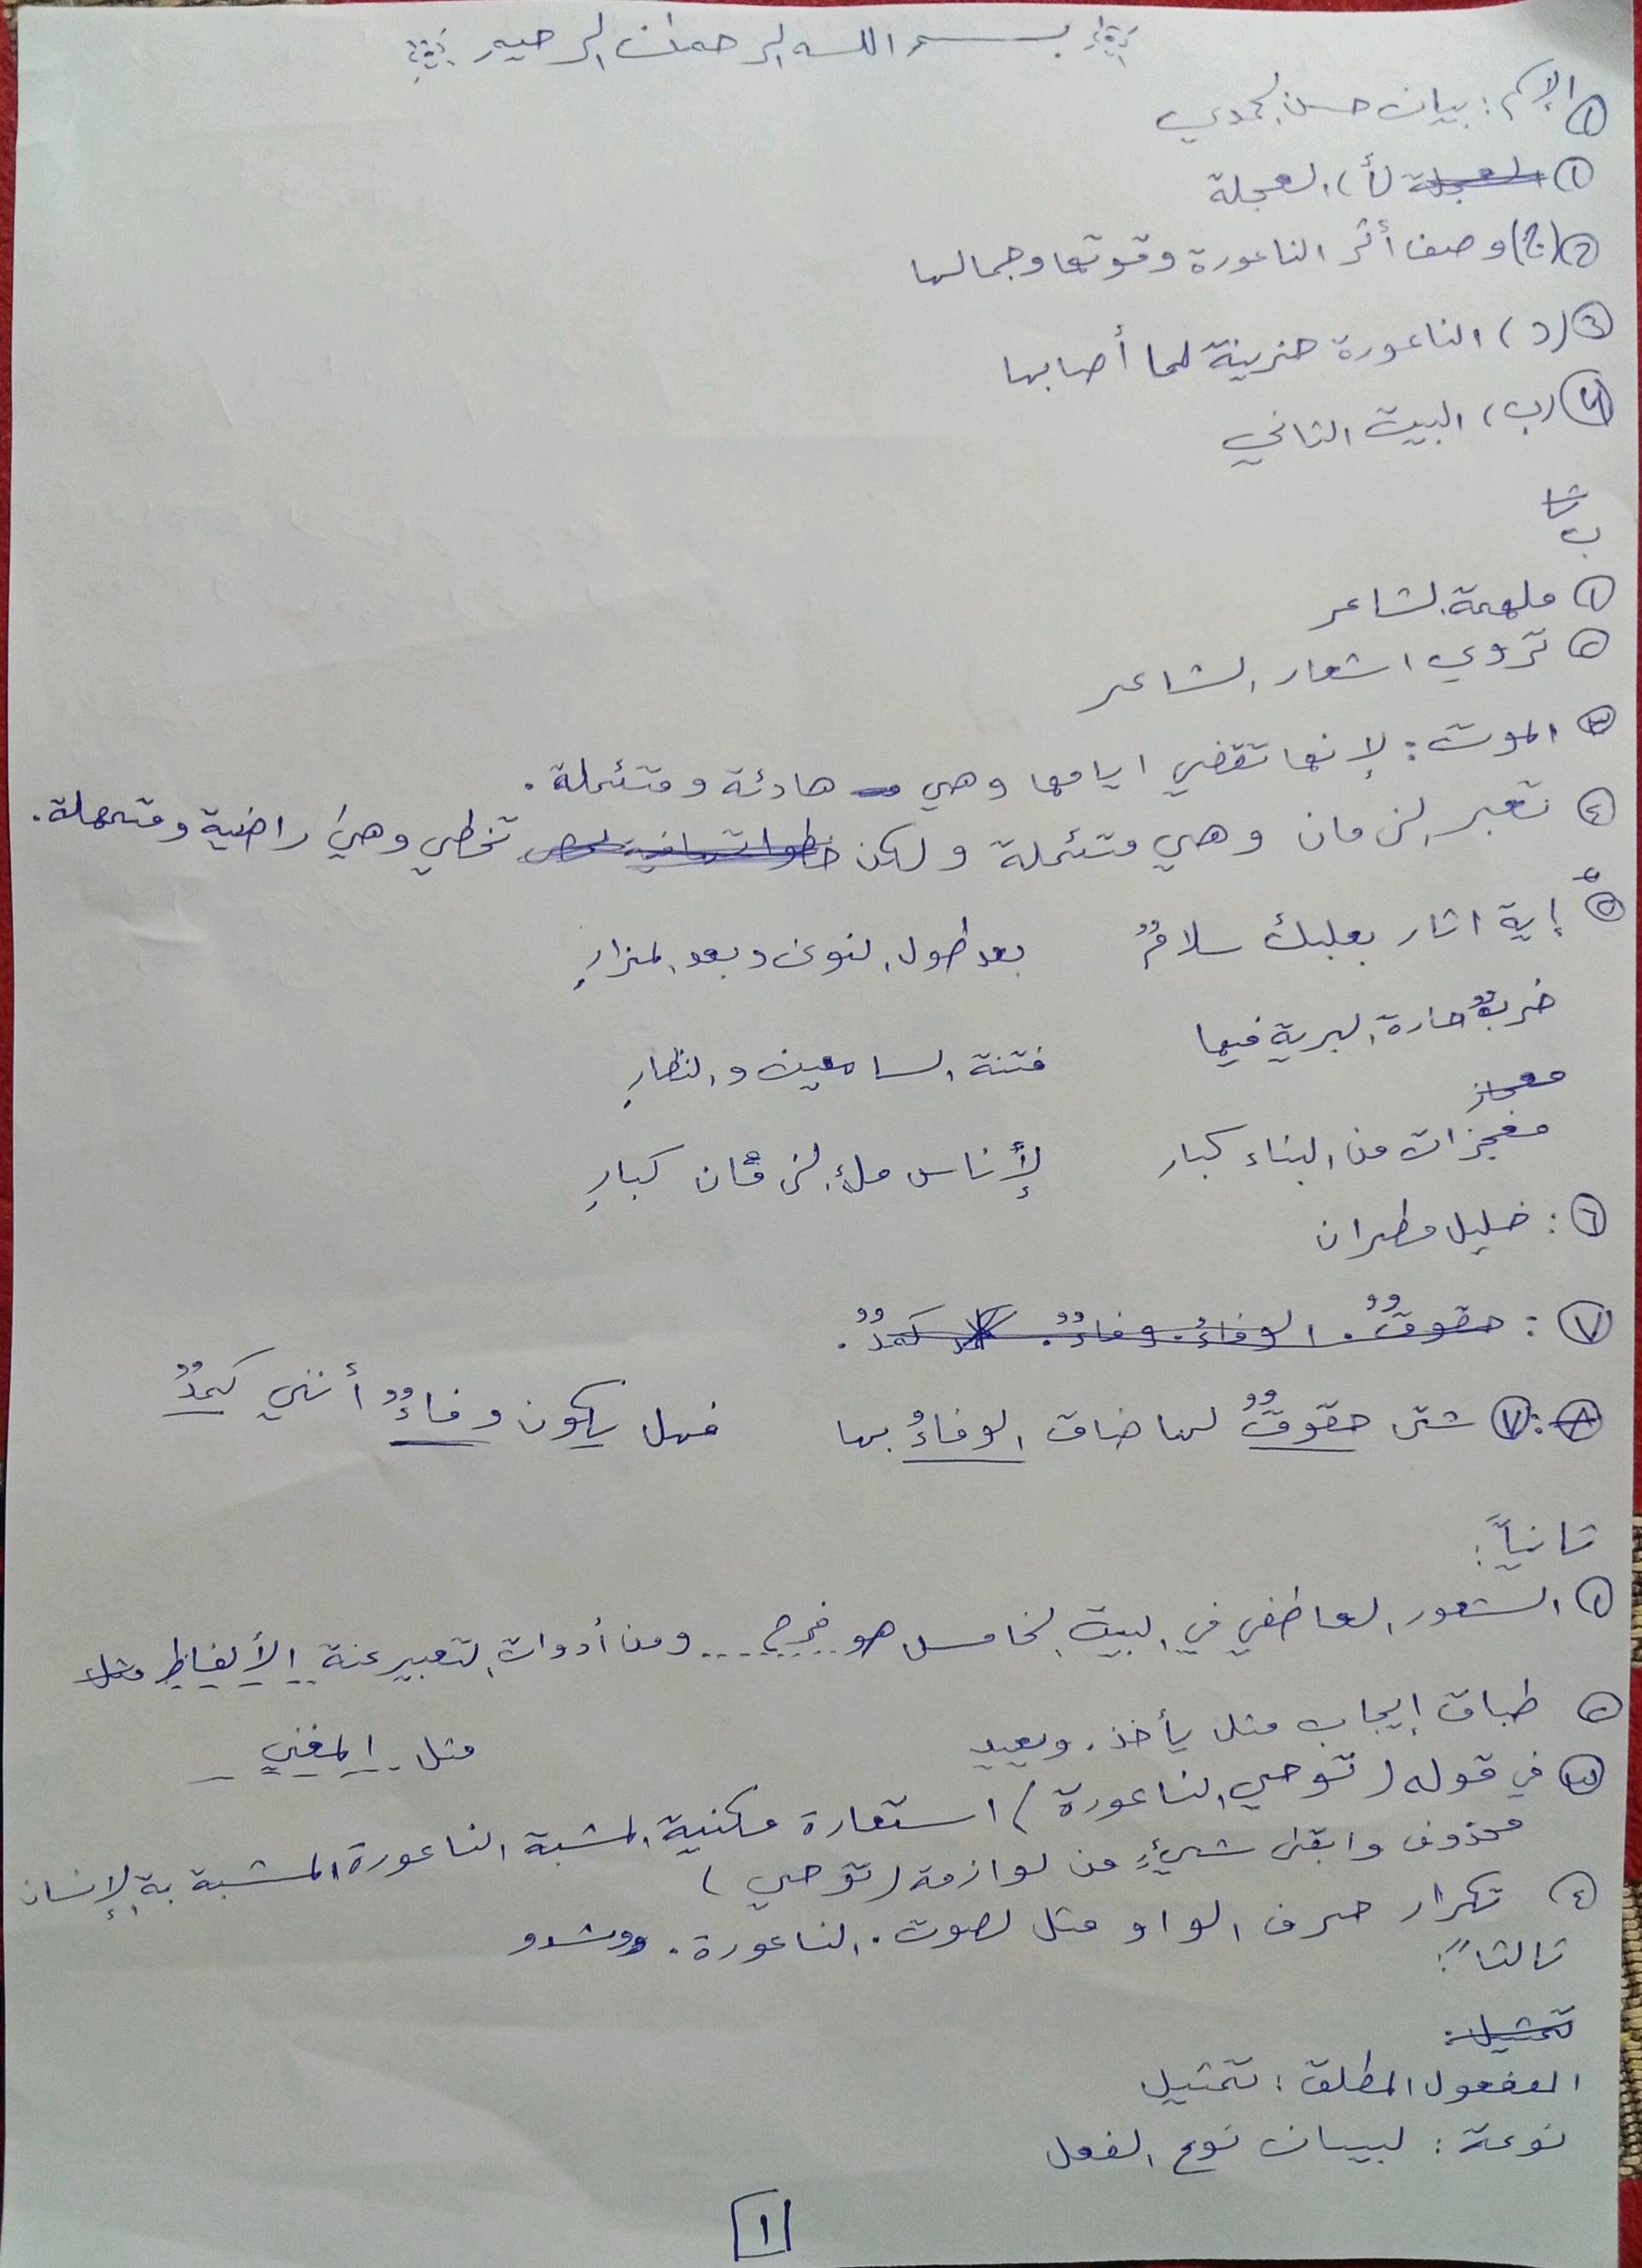 بسم الله الرحمن الرحيم
① الإسم: بيان حسن
① العجلة (أ) العجلة
② (ج) وصف أثر الناعورة وقوتها وجمالها
③ (د) الناعورة حزينة لما أصابها
④ (ب) البيت الثاني
ثا
ب
① ملهمة الشاعر
② تروي اشعار الشاعر
③ الموت: لإنها تقضي ايامها وهي هادئة ومتئملة.
④ تعبر الزمان وهي متئملة ولكن تخطي وهي راضية ومتمهلة.
⑤ إية اثار بعلبك سلامٌ بعد طول النوى وبعد المزارِ
خربةٌ حارة البرية فيها فتنة السامعين والنظارِ
معجز
معجزات من البناء كبار لأناس ملء الزمان كبارِ
⑥: خليل مطران
⑦: حقوقٌ. الوفاءُ. وفاءٌ. كمدٌ.
⑧: ⑦ شتى حقوقٌ لها ضاق الوفاءُ بها فهل يكون وفاءٌ أنني كمدٌ
ثانياً:
① الشعور العاطفي في البيت الخامس هو فرح... ومن أدوات التعبير عنة الألفاظ مثل
② طباق إيجاب مثل يأخذ. ويعيد
مثل المغني
③ في قوله (توحي الناعورة) استعارة مكنية المشبة الناعورة المشبة بة الإنسان
محذوف وابقى شيءٍ من لوازمة (توحي)
④ تكرار حرف الواو مثل لصوت. الناعورة. وشدو
ثالثاً:
تمثيل:
المفعول المطلق: تمثيل
نوعة: لبيان نوع الفعل
١